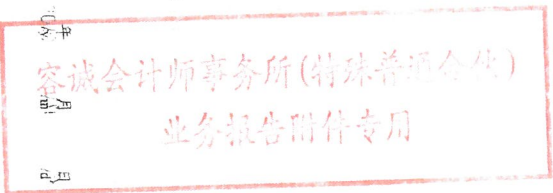 容诚会计师事务所(特殊普通合伙)
业务报告附件专用
年
月